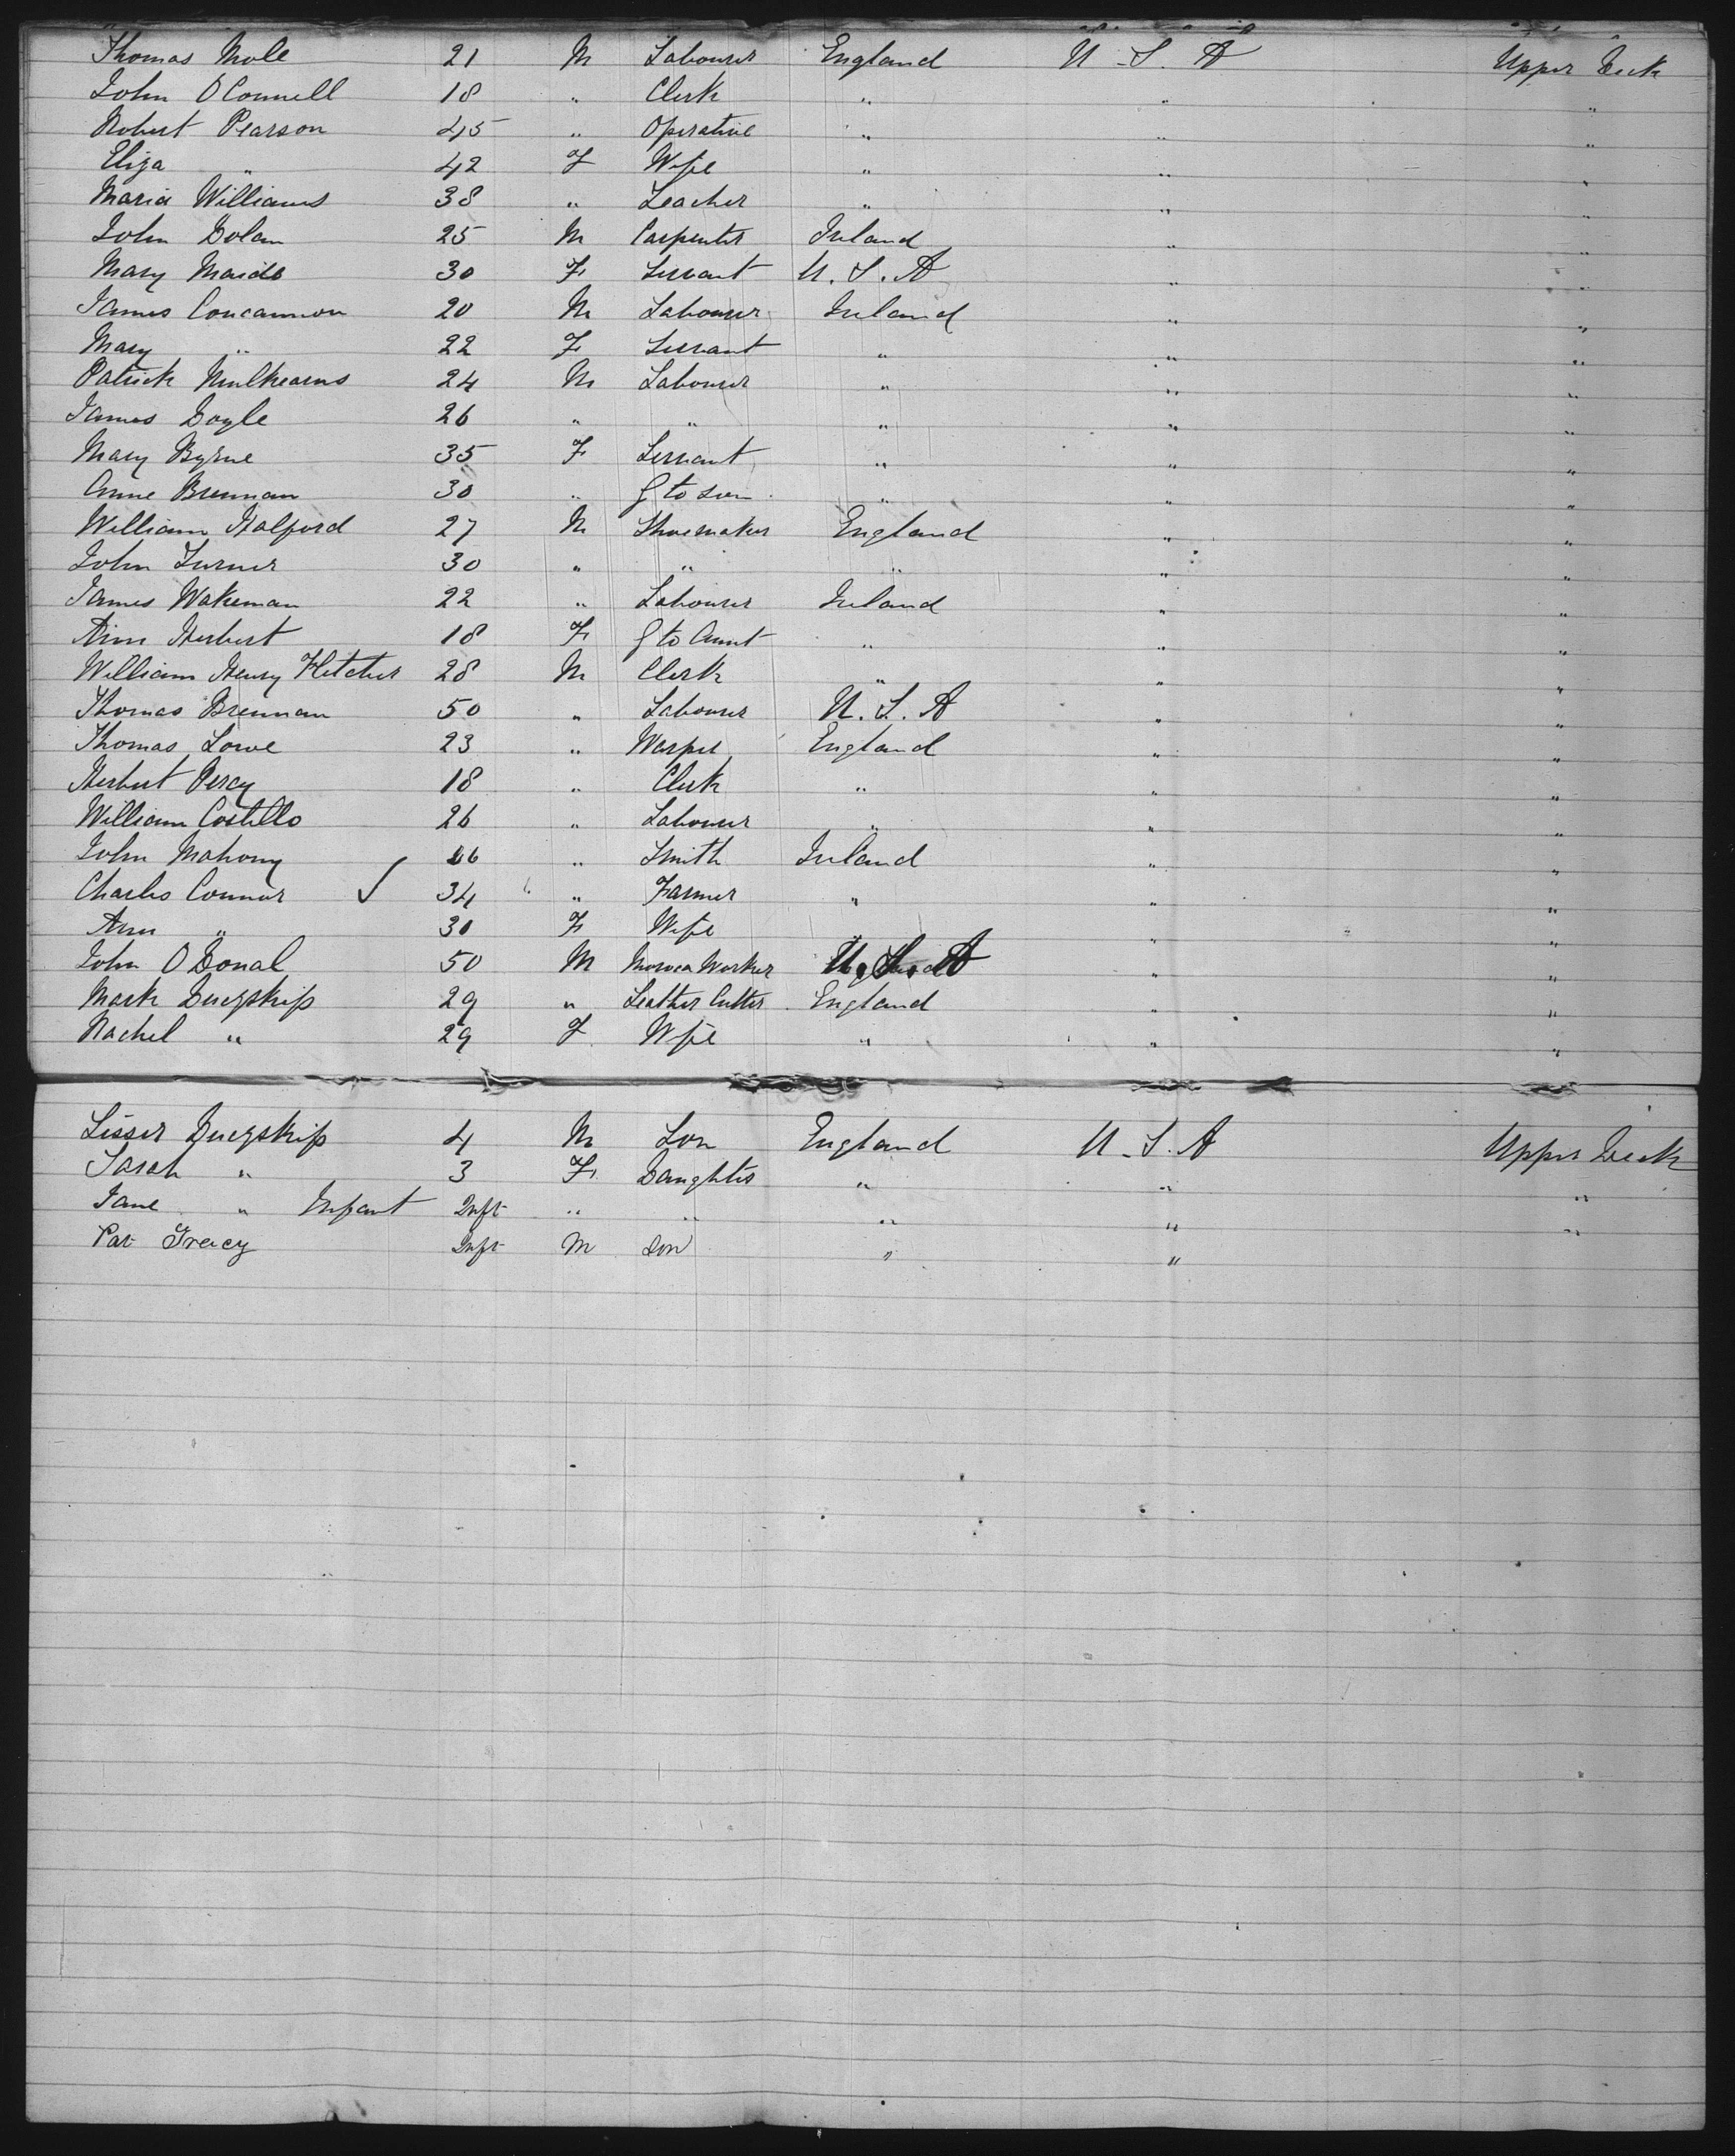 Thomas Mole 21 M Labourer England U.S.A Upper Deck
John O Connell 18 " Clerk " " "
Robert Pearson 45 " Operative " " "
Eliza " 42 F Wife " " "
Maria Williams 38 " Teacher " " "
John Dolan 25 M Carpenter Ireland " "
Mary 30 F Servant U.S.A " "
James Concannon 20 M Labourer Ireland " "
Mary " 22 F Servant " " "
Patrick Mulkearns 24 M Labourer " " "
James Doyle 26 " " " " "
Mary Byrne 35 F Servant " " "
Anne Brennan 30 " G to Son " " "
William Halford 27 M Shoemaker England " "
John Turner 30 " " " " "
James Wakeman 22 " Labourer Ireland " "
Ann Herbert 18 F G to Aunt " " "
William Henry Fletcher 28 M Clerk " " "
Thomas Brennan 50 " Labourer U.S.A " "
Thomas Lowe 23 " Warper England " "
Herbert Percy 18 " Clerk " " "
William Costello 26 " Labourer " " "
John Mahony 26 " Smith Ireland " "
Charles Connor ✓ 34 " Farmer " " "
Ann " 30 F Wife " " "
John O Donal 50 M Worker U.S.A " "
Mark 29 " Leather Cutter England " "
Rachel " 29 F Wife " " "
4 M Son England U.S.A Upper Deck
Sarah " 3 F Daughter " " "
Jane " Infant Inft " " " " "
Pat Treacy Inft M Son " "